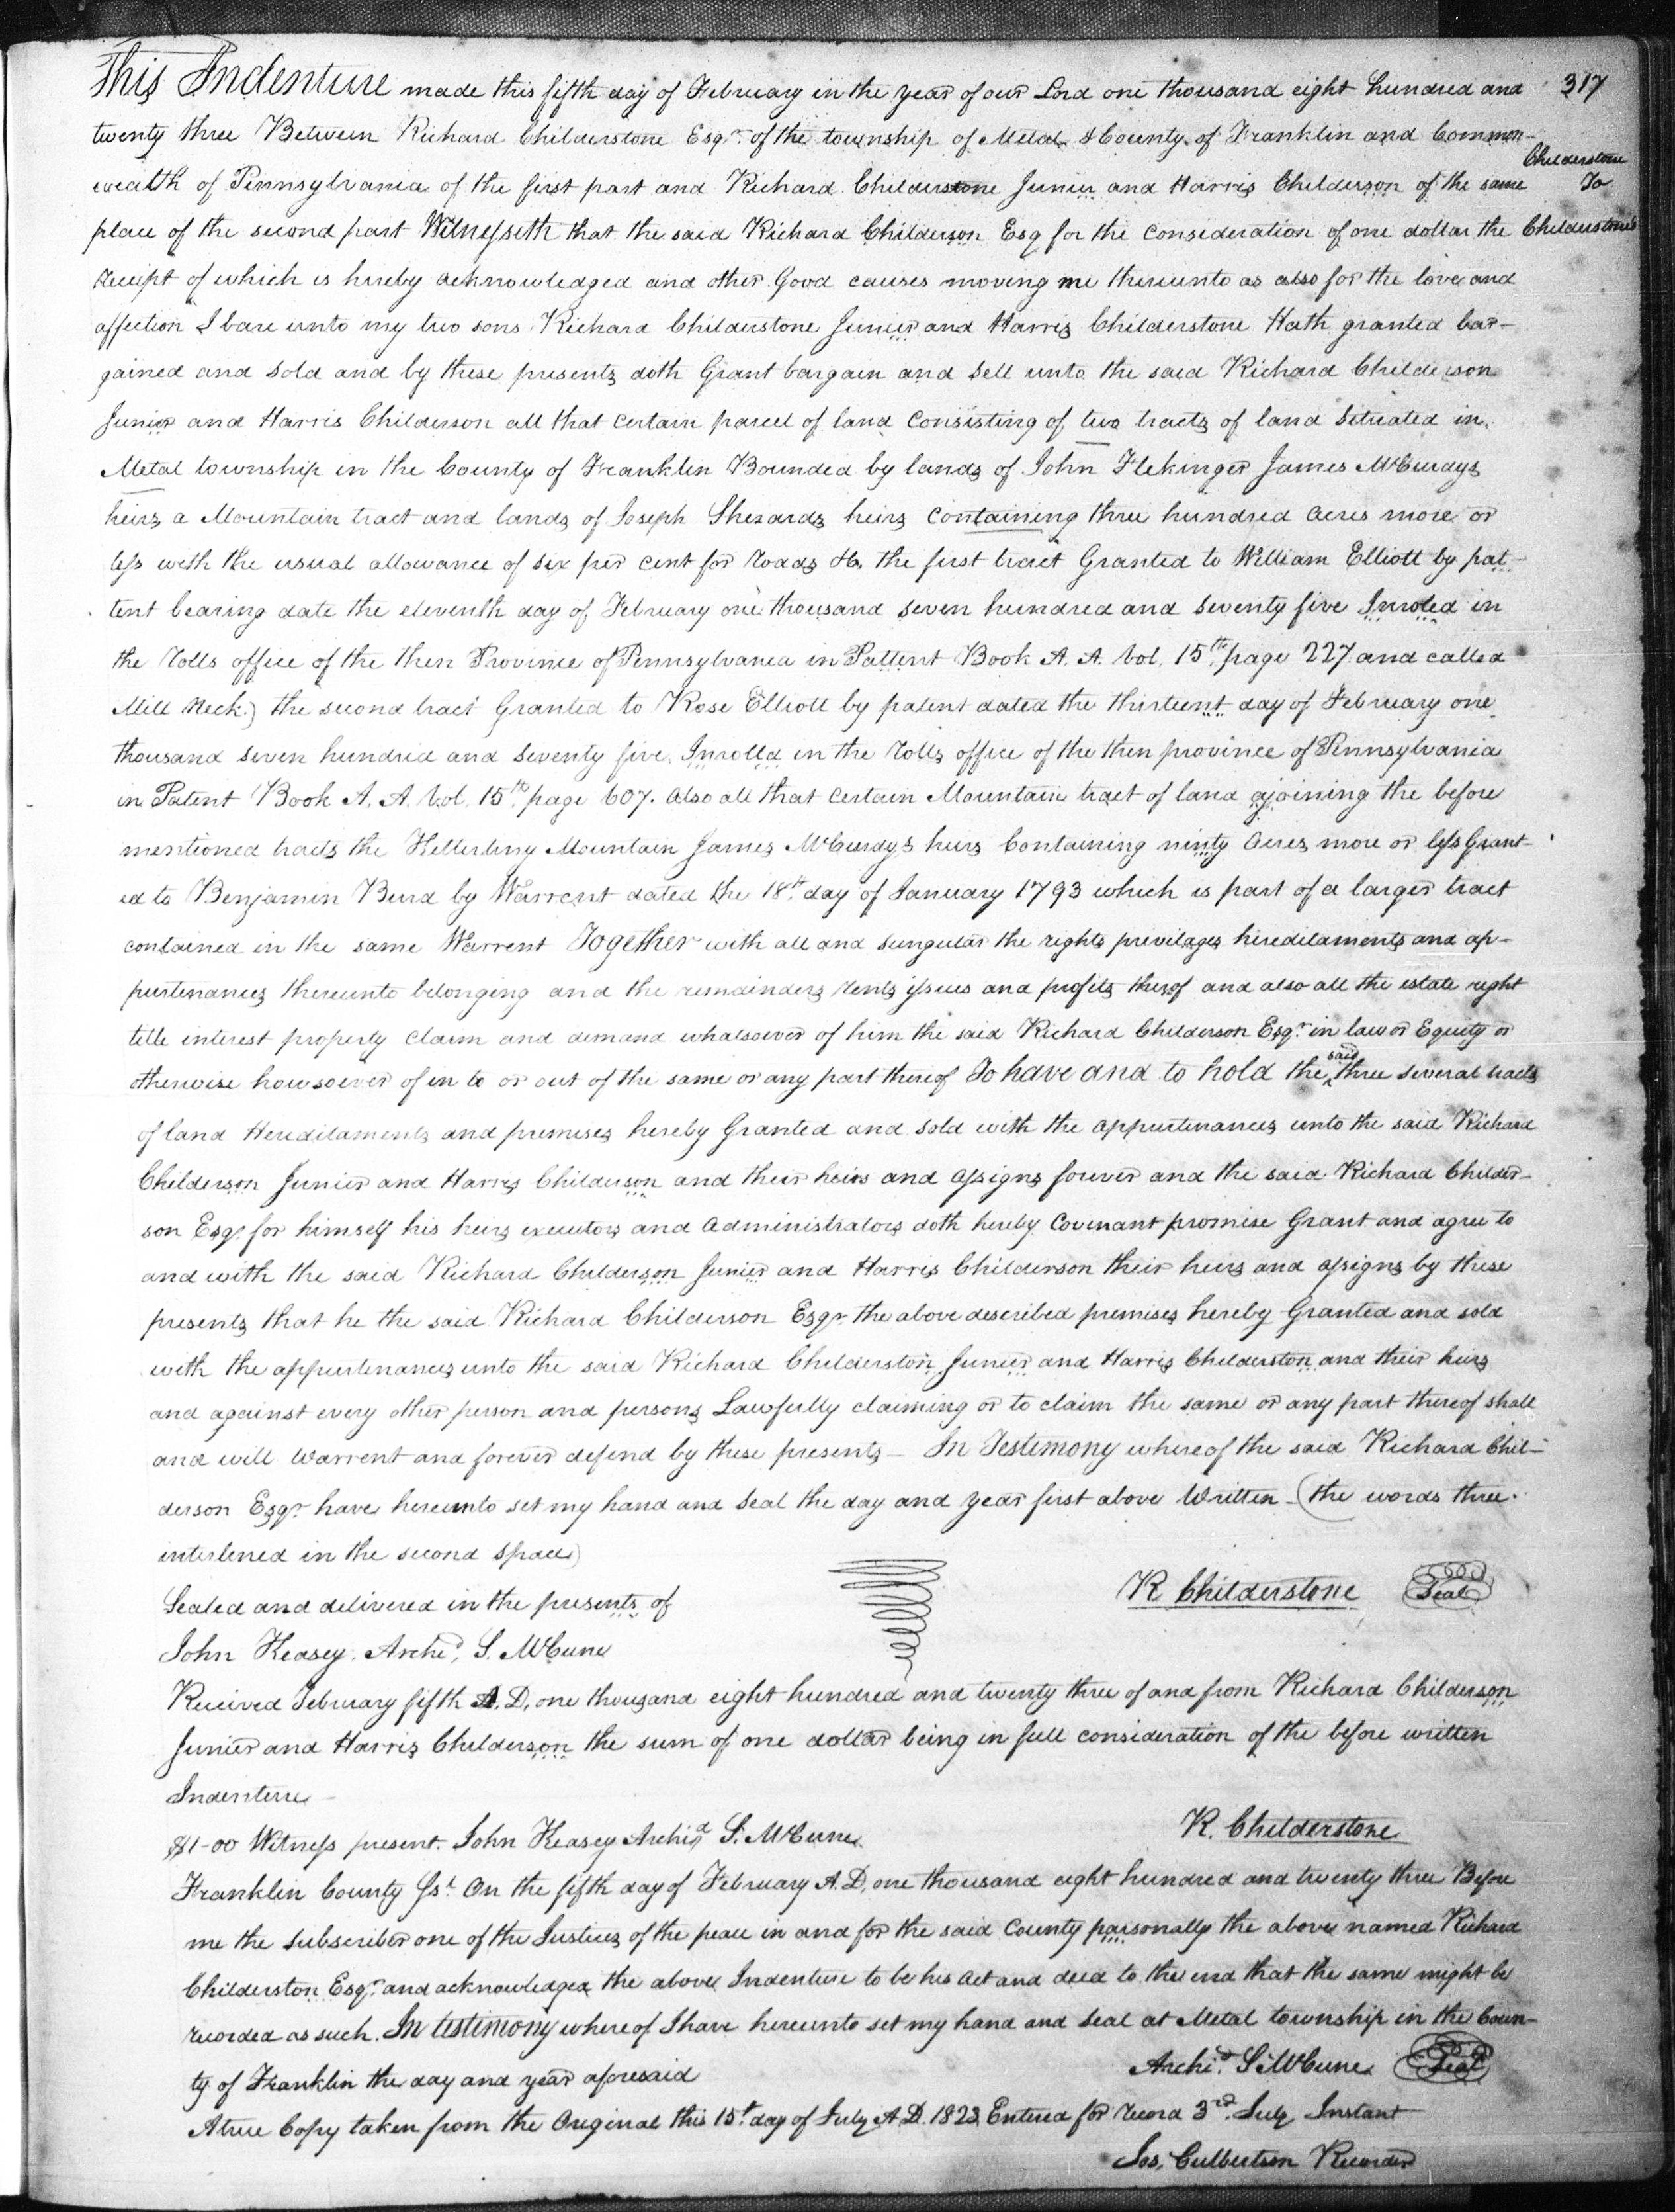 This Indenture made this fifth day of February in the year of our Lord one thousand eight hundred and 317
twenty three Between Richard Childerstone Esqr. of the township of Metal & County of Franklin and Common-
Childerstone
wealth of Pennsylvania of the first part and Richard Childerstone Junier and Harris Childerson of the same To
place of the second part Witnesseth that the said Richard Childerson Esq for the consideration of one dollar the Childerstones
receipt of which is hereby acknowledged and other Good causes moving me thereunto as also for the love and
affection I bare unto my two sons Richard Childerstone Junier and Harris Childerstone Hath granted bar-
gained and sold and by these presents doth Grant bargain and sell unto the said Richard Childerson
Junier and Harris Childerson all that certain parcel of land consisting of two tracts of land situated in
Metal township in the County of Franklin Bounded by lands of John Flekinger James McCurdys
heirs a Mountain tract and lands of Joseph Sherards heirs containing three hundred acres more or
less with the usual allowance of six per cent for roads &c. the first tract Granted to William Elliott by pat-
tent bearing date the eleventh day of February one thousand seven hundred and seventy five Inroled in
the rolls office of the then Province of Pennsylvania in Pattent Book A. A. Vol. 15th. page 227 and called
Mill Neck.) the second tract Granted to Rose Elliott by patent dated the thirteent day of February one
thousand seven hundred and seventy five Inrolld in the rolls office of the then province of Pennsylvania
in Patent Book A. A. Vol. 15th. page 607. also all that certain Mountain tract of land ajoining the before
mentioned tracts the Kitterling Mountain James McCurdys heirs Containing ninty acres more or less Grant-
ed to Benjamin Burd by Warrent dated the 18th. day of January 1793 which is part of a larger tract
contained in the same Warrent Together with all and sungular the rights previlages hereditaments and ap-
purtenances thereunto belonging and the remainders rents issues and profits therof and also all the estate right
title interest property claim and demand whatsoever of him the said Richard Childerson Esqr. in law or Equity or
otherwise howsoever of in to or out of the same or any part thereof To have and to hold the said three several tracts
of land Hereditaments and premises hereby Granted and sold with the appurtenances unto the said Richard
Childerson Junier and Harris Childerson and their heirs and assigns forever and the said Richard Childer-
son Esqr. for himself his heirs executors and administrators doth hereby Covenant promise Grant and agree to
and with the said Richard Childerson Junier and Harris Childerson their heirs and assigns by these
presents that he the said Richard Childerson Esqr the above described premises hereby Granted and sold
with the appurtenances unto the said Richard Childerston Junier and Harris Childerston and their heirs
and against every other person and persons Lawfully claiming or to claim the same or any part thereof shall
and will Warrent and forever defend by these presents - In Testimony whereof the said Richard Chil-
derson Esqr. have hereunto set my hand and seal the day and year first above Written (the words three
interlined in the second space)
R Childerstone Seal
Sealed and delivered in the presents of
John Keasey, Archd. S. McCune
Received February fifth A.D. one thousand eight hundred and twenty three of and from Richard Childerson
Junier and Harris Childerson the sum of one dollar being in full consideration of the before written
Indenture -
$1-00 Witness present. John Keasey Archid S. McCune R. Childerstone
Franklin County Ss. On the fifth day of February A.D. one thousand eight hundred and twenty three Before
me the subscriber one of the Justices of the peace in and for the said County parsonally the above named Richard
Childerston Esqr. and acknowledged the above Indenture to be his act and deed to the end that the same might be
recorded as such. In testimony whereof I have hereunto set my hand and seal at Metal township in the Coun-
ty of Franklin the day and year aforesaid Archid. S. McCune Seal
A true Copy taken from the Original this 15t. day of July A.D. 1823 Entered for record 3rd. July Instant
Jos. Culbertson Recorder